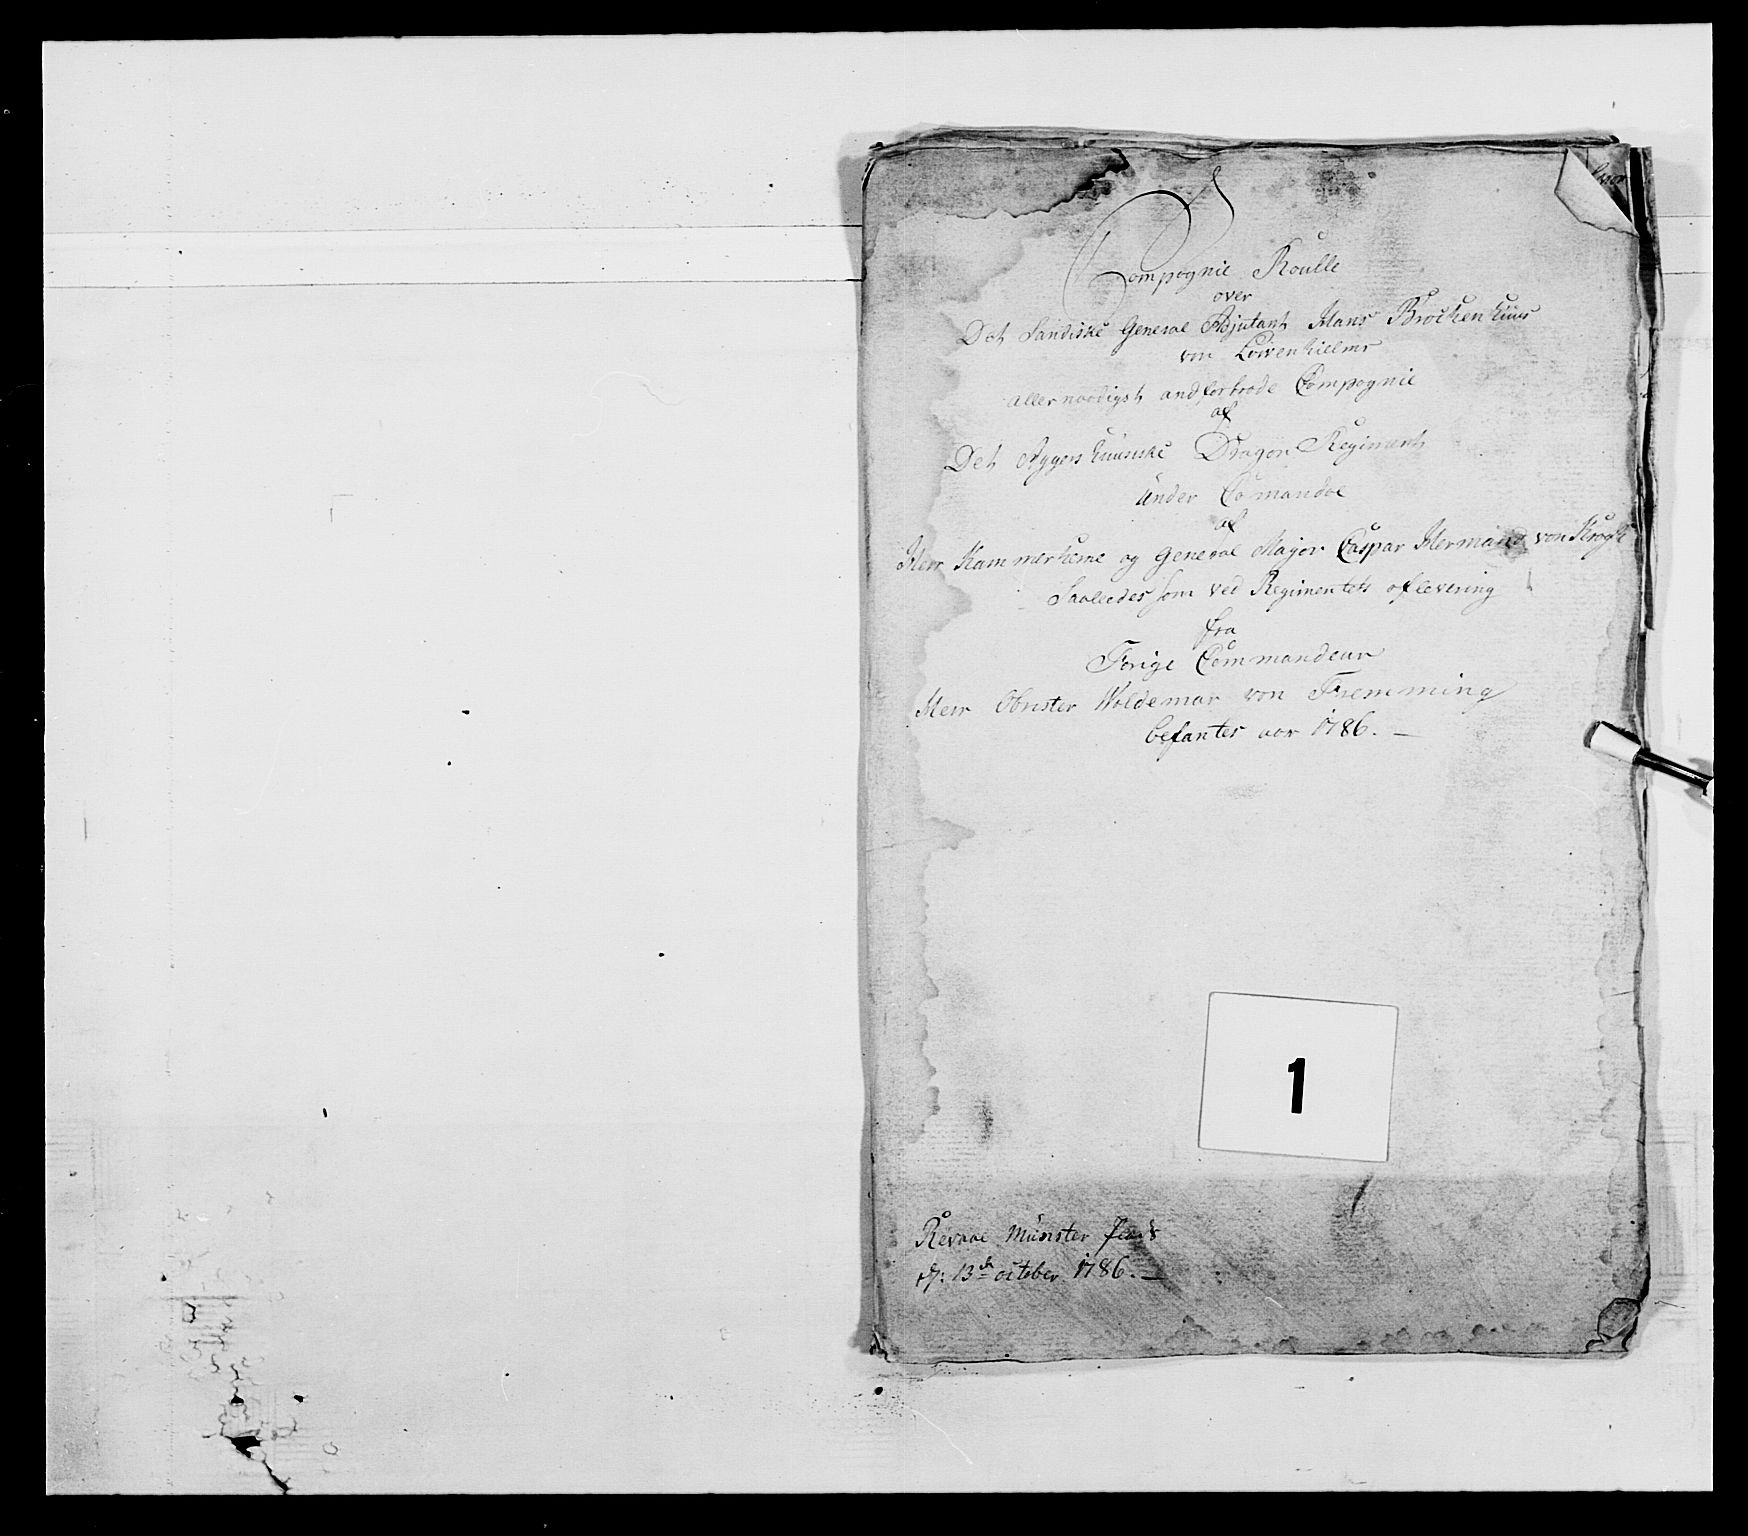 Compagnie Roulle
over
Det Landiske General Adjutant Hans Brockenhuus
von Löwenhielms
allernaadigst andfortrode Compagnie
af
Det Aggershuusiske Dragon Regiment
under Comandoe
af
Herr Kammerherre og General Major Caspar Hermand von Krogh
Saaledes som ved Regimentets aflevering
fra
Forige Commandeur
Herr Obrister Woldemar von Fremming
befantes aar 1786. —
1
Revaae Münster
d: 13de october 1786. —